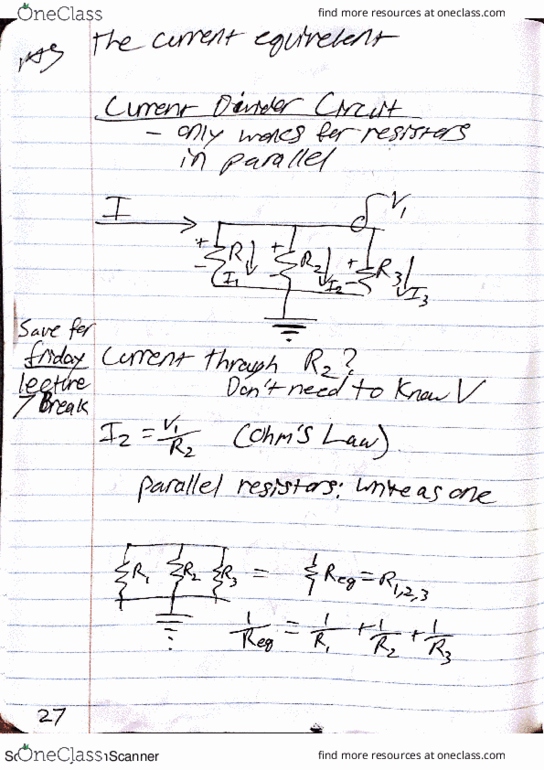 OneClass
find more resources at oneclass.com
the current equivelent
Current Divider Circuit
- only works for resistors
in parallel
I
V1
+ R1 + R2 + R3
- I1 - I2 - I3
Save for
friday
lecture
/ Break
Current through R2?
Don't need to know V
I2 = V1/R2 (Ohm's Law)
parallel resistors: write as one
R1 R2 R3 = Req = R1,2,3
1/Req = 1/R1 + 1/R2 + 1/R3
27
OneClass
Scanner
find more resources at oneclass.com